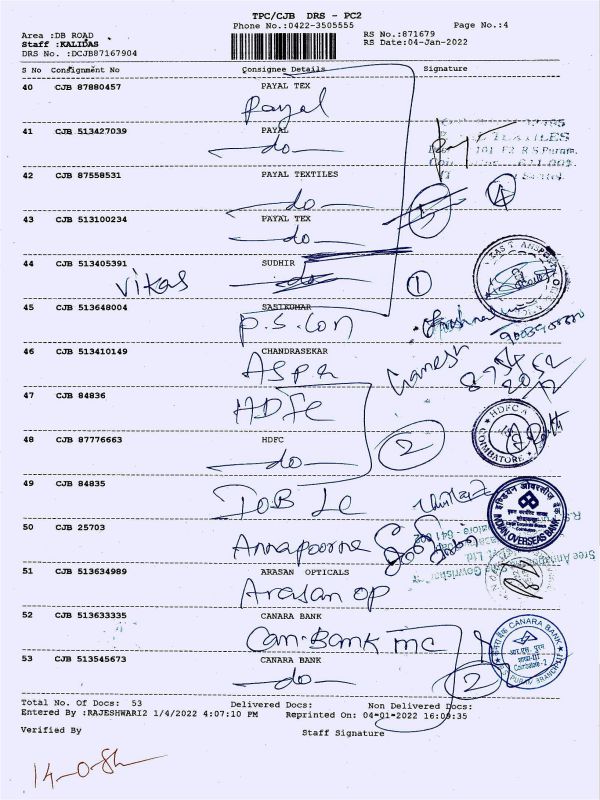 TPC/CJB DRS - PC2
Phone No.:0422-3505555
Page No.:4
Area :DB ROAD
RS No.:871679
Staff :KALIDAS
RS Date:04-Jan-2022
DRS No. :DCJB87167904
S No Consignment No Consignee Details Signature
40 CJB 87880457 PAYAL TEX
Payal
41 CJB 513427039 PAYAL
-do-
TEXTILES
101 F2 R S Puram,
42 CJB 87558531 PAYAL TEXTILES
-do-
4
43 CJB 513100234 PAYAL TEX
-do-
5
44 CJB 513405391 SUDHIR
-do-
vikas
1
45 CJB 513648004 SASIKUMAR
P.S.Con
46 CJB 513410149 CHANDRASEKAR
Aspa
Ganesh
8754
2052
12
47 CJB 84836
HDFC
HDFC
COIMBATORE
48 CJB 87776663 HDFC
-do-
2
49 CJB 84835
IOB LC
इण्डियन ओवरसीज़ बैंक
INDIAN OVERSEAS BANK
50 CJB 25703
Annapoorna
51 CJB 513634989 ARASAN OPTICALS
Arasan op
52 CJB 513633335 CANARA BANK
Can.Bank mc
CANARA BANK
Coimbatore-2
53 CJB 513545673 CANARA BANK
-do-
2
Total No. Of Docs: 53 Delivered Docs: Non Delivered Docs:
Entered By :RAJESHWARI2 1/4/2022 4:07:10 PM Reprinted On: 04-01-2022 16:09:35
Verified By Staff Signature